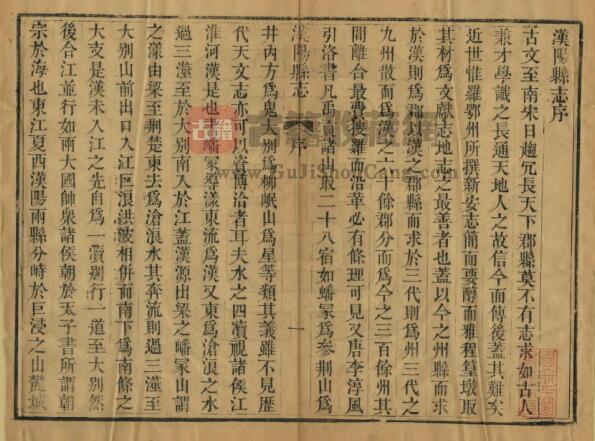 漢陽縣志序
古文至南宋日趨冗長天下郡縣莫不有志求如古人
兼才學識之長通天地人之故信今而傳後蓋其難矣
近世惟羅鄂州所撰新安志簡而要醇而雅程篁墩取
其材爲文獻志地志之最善者也蓋以今之州縣而求
於漢則爲郡以漢之郡縣而求於三代則爲州三代之
九州散而爲漢之六十餘郡分而爲今之三百餘州其
間離合最費搜羅而沿革必有條理可見又唐李淳風
引洛書凡禹貢諸山取二十八宿如嶓冢爲參荆山爲
漢陽縣志
序
一
井內方爲鬼大別爲柳岷山爲星等類其義雖不見歷
代天文志亦可以資博洽者耳夫水之四瀆視諸侯江
淮河漢是也嶓冢導漾東流爲漢又東爲滄浪之水
過三澨至於大別南入於江蓋漢源出梁之嶓冢山謂
之漾由梁至荆楚東去爲滄浪水其奔流則過三澨至
大別山前出口入江巨浪洪波相併而南下爲南條之
大支是漢未入江之先自爲一瀆別行一道至大別然
後合江並行如兩大國帥衆諸侯朝於天子書所謂朝
宗於海也東江夏西漢陽兩縣分峙於巨浸之山麓城
古籍
古籍收藏網
www.GuJiShouCang.com